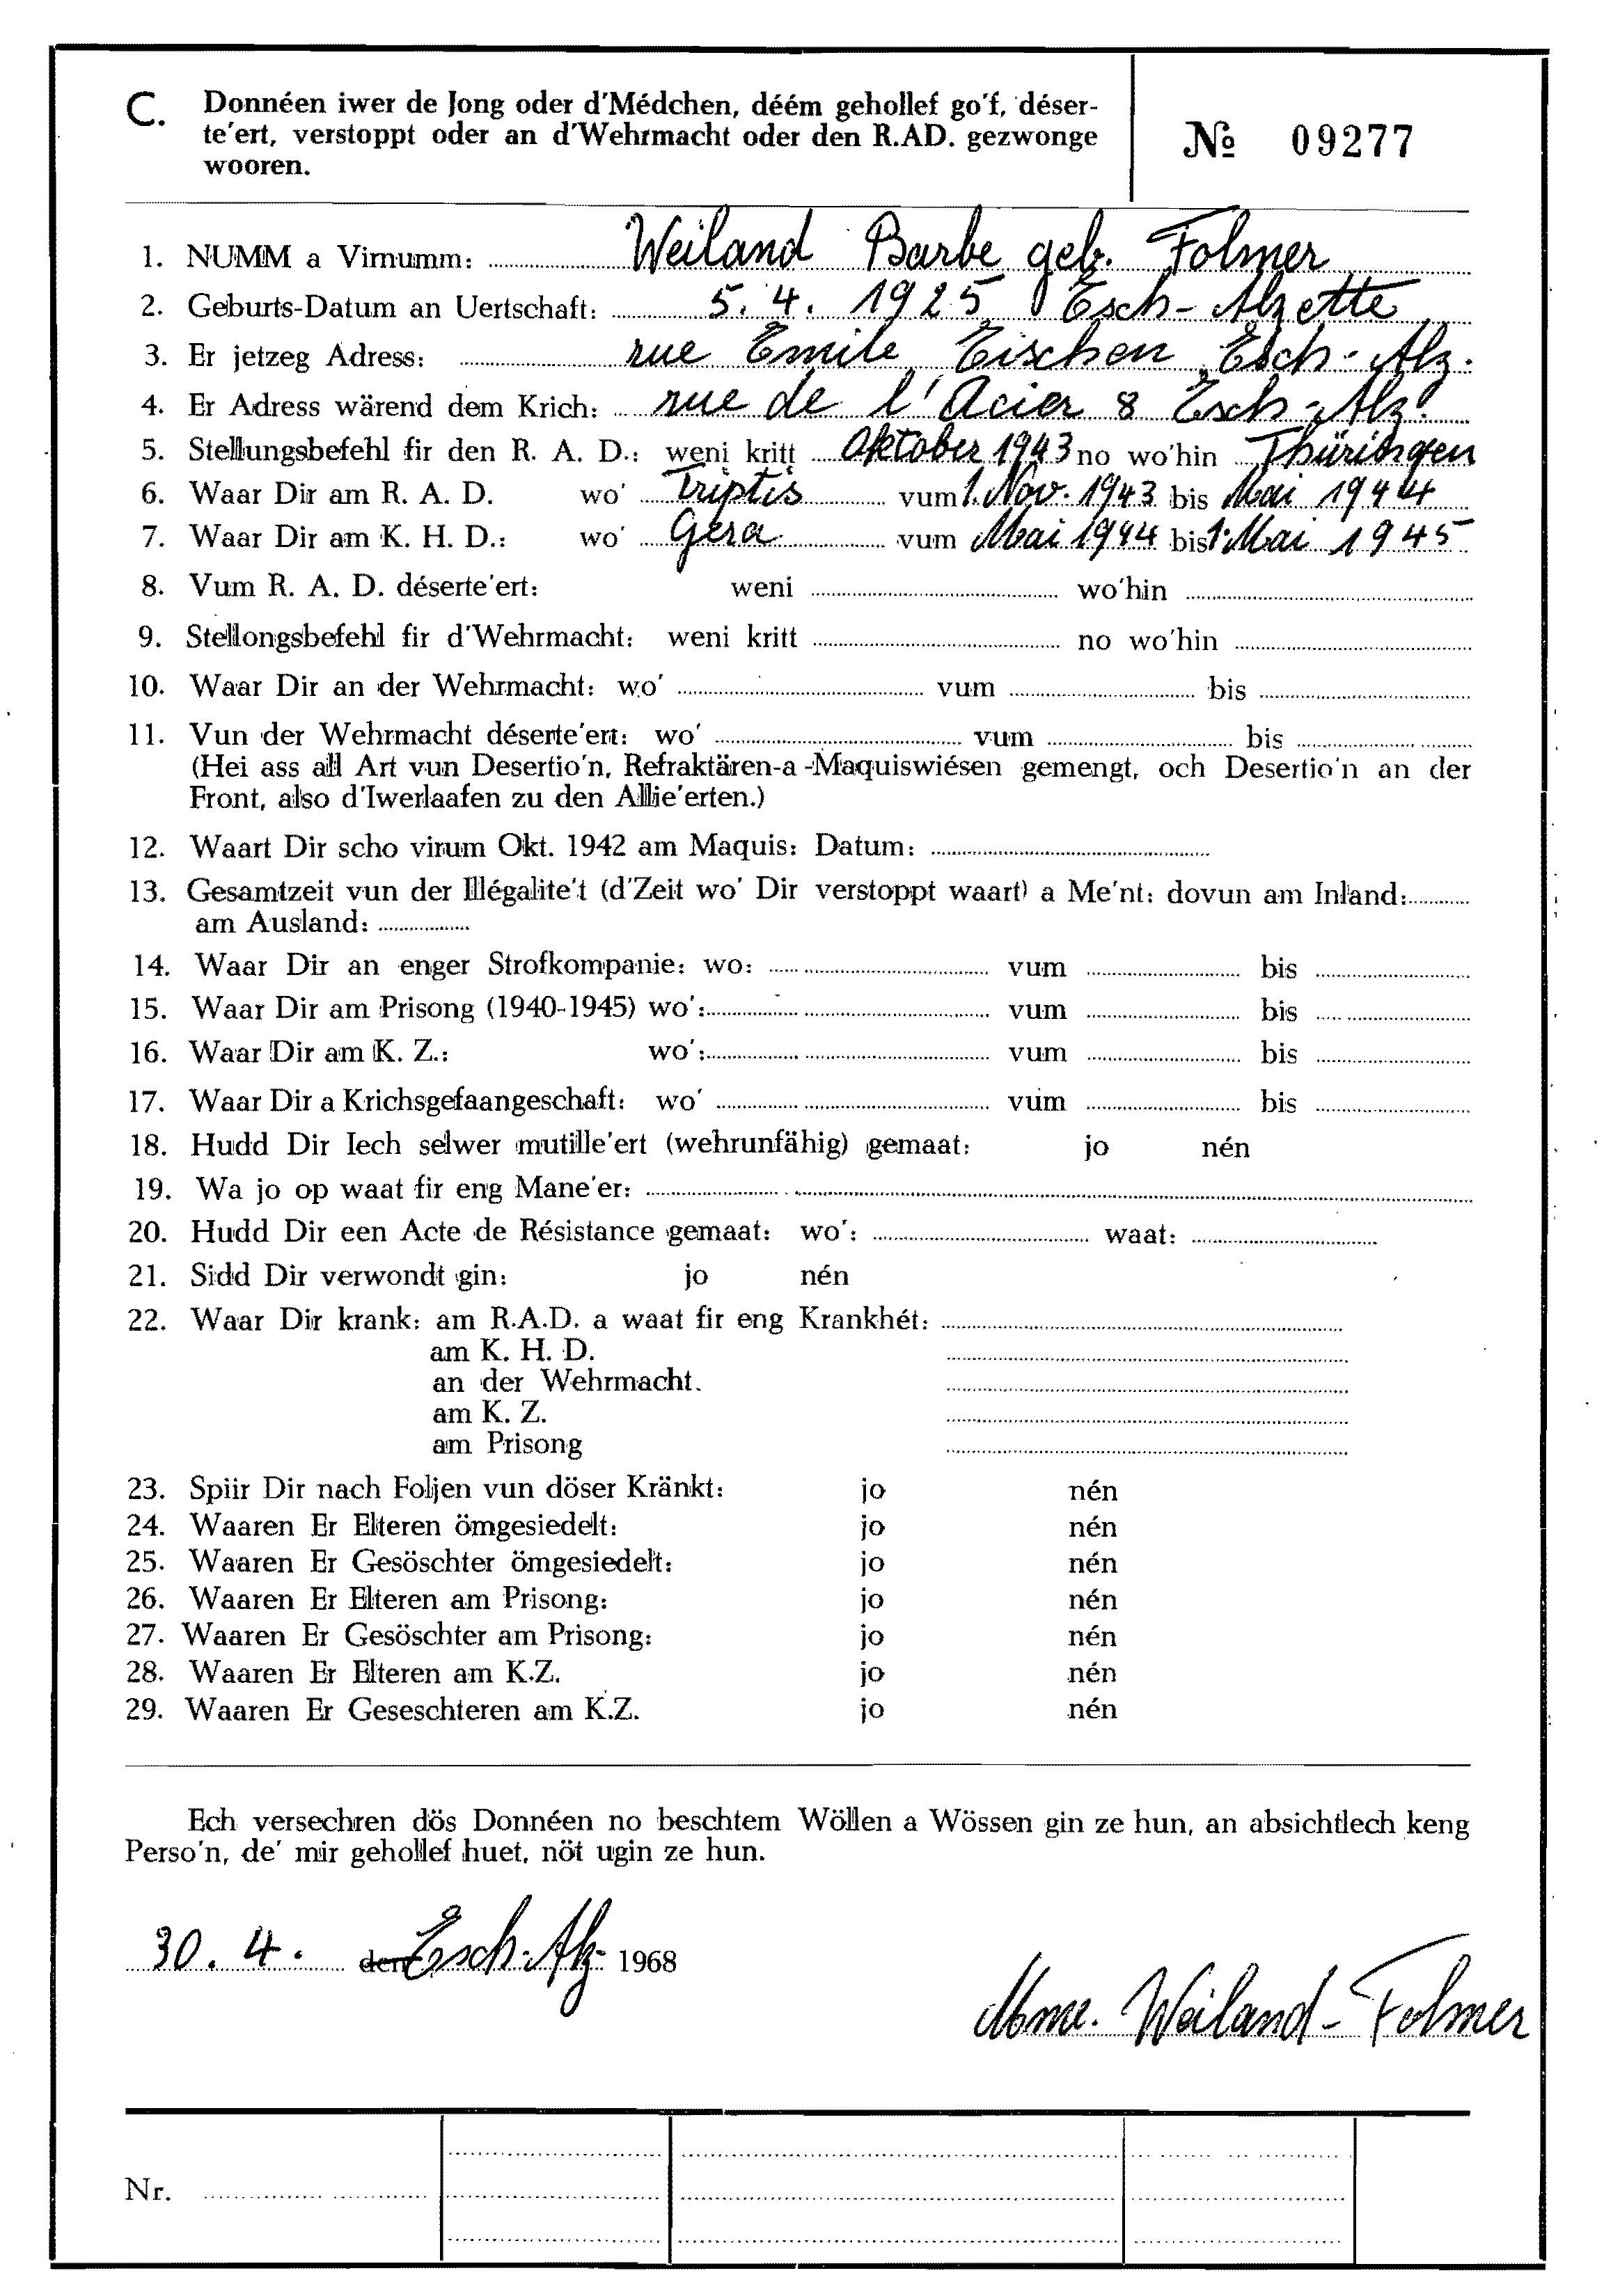 C. Donnéen iwer de Jong oder d'Médchen, déém gehollef go'f, déser-
te'ert, verstoppt oder an d'Wehrmacht oder den R.AD. gezwonge
wooren.
№ 09277
1. NUMM a Virnumm: Weiland Barbe geb. Folmer
2. Geburts-Datum an Uertschaft: 5. 4. 1925 Esch-Alzette
3. Er jetzeg Adress: rue Emile Eischen Esch-Alz.
4. Er Adress wärend dem Krich: rue de l'Acier 8 Esch-Alz.
5. Stellungsbefehl fir den R. A. D.: weni kritt Oktober 1943 no wo'hin Thüringen
6. Waar Dir am R. A. D. wo' Triptis vum 1. Nov. 1943 bis Mai 1944
7. Waar Dir am K. H. D.: wo' Gera vum Mai 1944 bis 1. Mai 1945
8. Vum R. A. D. déserte'ert: weni wo'hin
9. Stellongsbefehl fir d'Wehrmacht: weni kritt no wo'hin
10. Waar Dir an der Wehrmacht: wo' vum bis
11. Vun der Wehrmacht déserte'ert: wo' vum bis
(Hei ass all Art vun Desertio'n, Refraktären-a-Maquiswiésen gemengt, och Desertio'n an der
Front, also d'Iwerlaafen zu den Allie'erten.)
12. Waart Dir scho virum Okt. 1942 am Maquis: Datum:
13. Gesamtzeit vun der Illégalite't (d'Zeit wo' Dir verstoppt waart) a Me'nt: dovun am Inland:
am Ausland:
14. Waar Dir an enger Strofkompanie: wo: vum bis
15. Waar Dir am Prisong (1940-1945) wo': vum bis
16. Waar Dir am K. Z.: wo': vum bis
17. Waar Dir a Krichsgefaangeschaft: wo' vum bis
18. Hudd Dir Iech selwer mutille'ert (wehrunfähig) gemaat: jo nén
19. Wa jo op waat fir eng Mane'er:
20. Hudd Dir een Acte de Résistance gemaat: wo': waat:
21. Sidd Dir verwondt gin: jo nén
22. Waar Dir krank: am R.A.D. a waat fir eng Krankhét:
am K. H. D.
an der Wehrmacht.
am K. Z.
am Prisong
23. Spiir Dir nach Foljen vun döser Kränkt: jo nén
24. Waaren Er Elteren ömgesiedelt: jo nén
25. Waaren Er Gesöschter ömgesiedelt: jo nén
26. Waaren Er Elteren am Prisong: jo nén
27. Waaren Er Gesöschter am Prisong: jo nén
28. Waaren Er Elteren am K.Z. jo nén
29. Waaren Er Geseschteren am K.Z. jo nén
Ech versechren dös Donnéen no beschtem Wöllen a Wössen gin ze hun, an absichtlech keng
Perso'n, de' mir gehollef huet, nöt ugin ze hun.
30. 4. den Esch-Alz 1968
Mme. Weiland-Folmer
Nr.